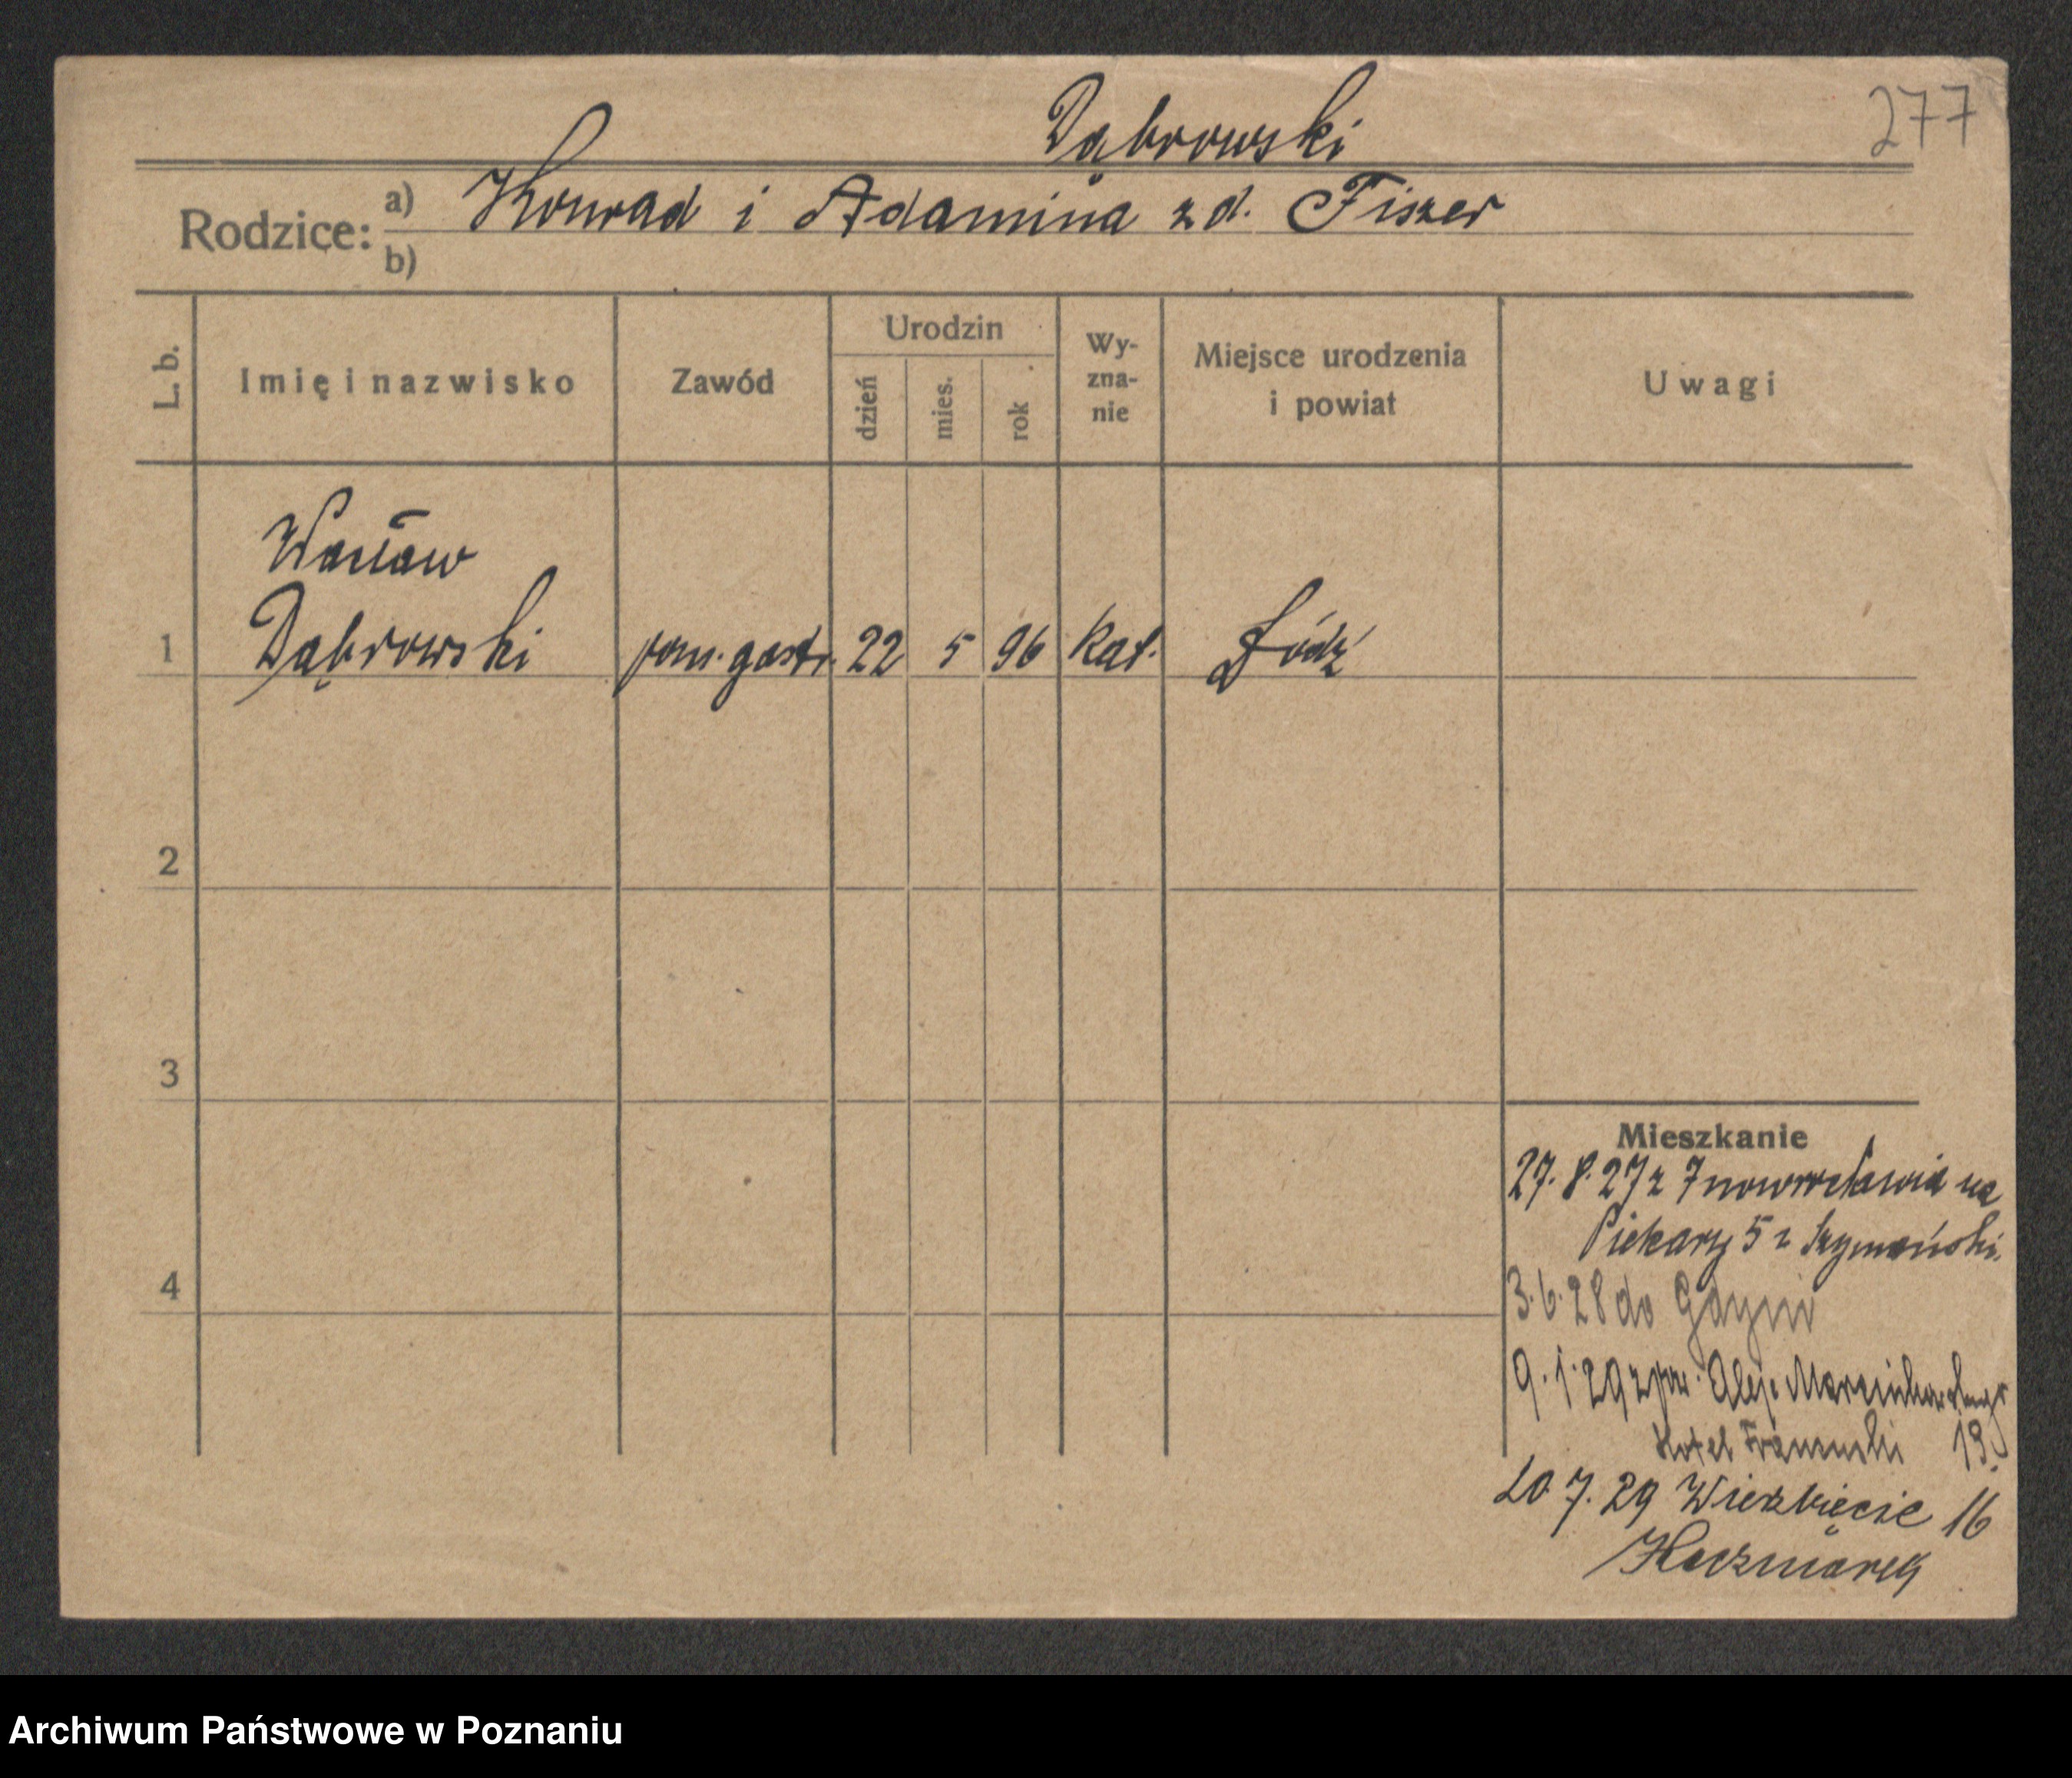 277
Dąbrowski
Rodzice: a) Konrad i Adamina z d. Fiszer
b)
L. b. Imię i nazwisko Zawód Urodzin dzień mies. rok Wy-zna-nie Miejsce urodzenia i powiat Uwagi
Wacław
1 Dąbrowski pom. gastr. 22 5 96 kat. Łódź
2
3
4
Mieszkanie
27. 8. 27 z Inowrocławia na
Piekary 5 z Szymański
3. 6. 28 do Gdyni
9. 1. 29 z pow. Aleje Marcinkowskiego
Hotel Francuski 19.
10. 7. 29 Wierzbięcie 16
Kaczmarek
Archiwum Państwowe w Poznaniu